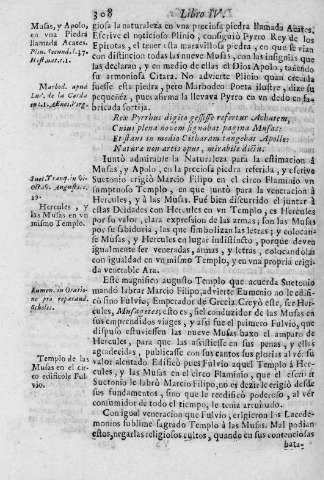 308
Libro IV.
Musas, y Apolo,
en vna Piedra
llamada Acates.
Plin. secund. l. 37.
Marbod. apud
Suet. Tranq. in Oc-
Hercules, y
las Musas en vn
mismo Templo.
Eumen. in Oratio-
ne pro reparand.
scholis.
Templo de las
Musas en el cir-
co edificóle Ful-
vio.
giosa la naturaleza en vna preciosa piedra llamada Acates.
Escrive el noticioso Plinio, consiguiò Pyrro Rey de los
Epirotas, el tener esta maravillosa piedra, en que se vian
con distincion todas las nueve Musas, con las insignias que
las declaran, y en medio de ellas al Dios Apolo, tañendo
su armoniosa Citara. No advierte Plinio quan crecida
fuesse esta piedra, pero Marbodeo Poeta ilustre, dize su
pequeñèz, pues afirma la llevava Pyrro en vn dedo en fa-
bricada sortija.
Rex Pyrrhus digito gessisse refertur Achatem,
Cuius plena novem signabat pagina Musas:
Et stans in medio Citharam tangebat Apollo:
Natura non artis opus, mirabile dictu.
Juntò admirable la Naturaleza para la estimacion à
Musas, y Apolo, en la preciosa piedra referida, y escrive
Suetonio erigiò Marcio Filipo en el circo Flaminio vn
sumptuoso Templo, en que juntò para la veneracion à
Hercules, y à las Musas. Fuè bien discurrido el juntar à
estas Deidades con Hercules en vn Templo, es Hercules
por su valor, clara expression de las armas; son las Musas
por su sabiduria, las que simbolizan las letras; y colocan-
se Musas, y Hercules en lugar indistincto, porque deven
igualmente ser veneradas, armas, y letras, colocandolas
con igualdad en vn mismo Templo, y en vna propria erigi-
da venerable Ara.
Este magnifico augusto Templo que acuerda Suetonio
mandò labrar Marcio Filipo, advierte Eumenio no le edifi-
cò sino Fulvio, Emperador de Grecia. Creyò este, ser Her-
cules, Musagetes; esto es, ser conduzidor de las Musas en
sus emprendidos viages, y assi fue el primero Fulvio, que
dispuso estuviessen las nueve Musas baxo el amparo de
Hercules, para que las assistiesse en sus penas, y ellas
agradecidas, publicasse con sus cantos sus glorias al vèr su
valor alentado. Edificò pues Fulvio aquel Templo à Her-
cules, y las Musas en el circo Flaminio, que el escrivir
Suetonio le labrò Marcio Filipo, no es dezir le erigiò des-
de sus fundamentos, sino que le reedificò poderoso, al vèr
consumidor de todo el tiempo, le tenia arruinado.
Con igual veneracion que Fulvio, erigieron los Lacede-
monios sublime sagrado Templo à las Musas. Mal podian
estos, negarlas religiosos cultos, quando en sus contenciosas
bata-